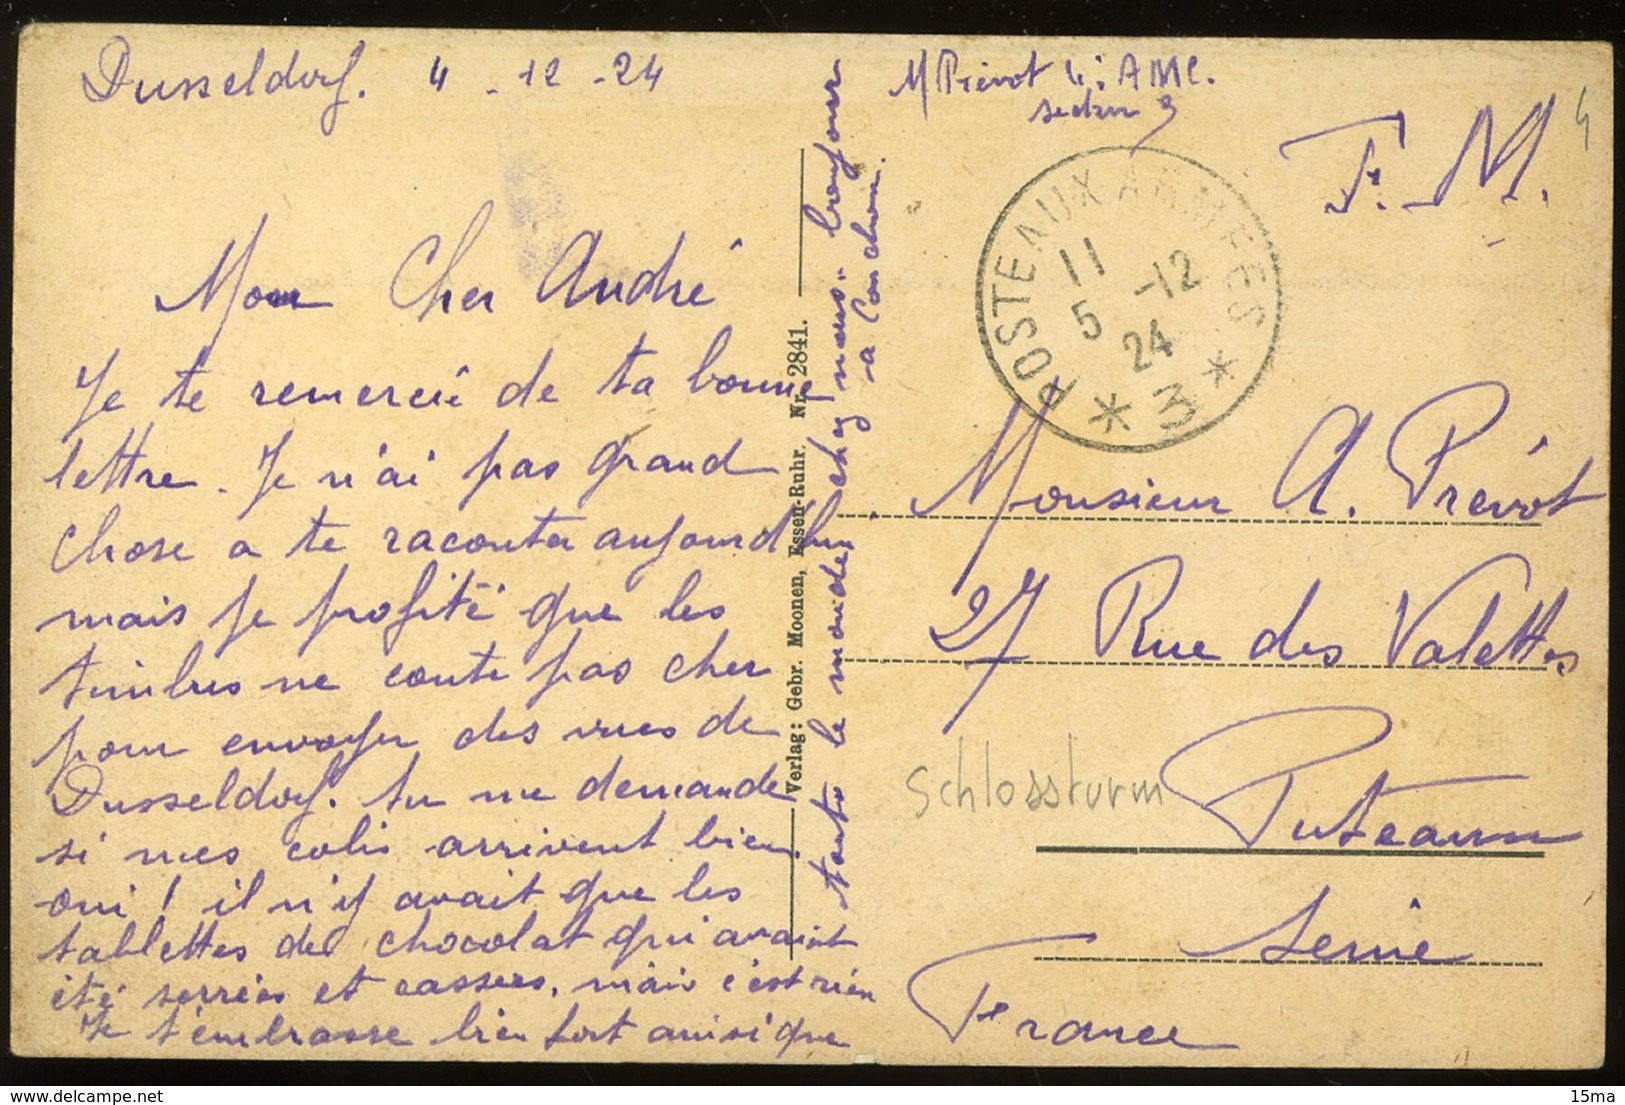 Dusseldorf. 4 - 12 - 24
Mon Cher André
Je te remercie de ta bonne
lettre. Je n'ai pas grand
chose a te raconter aujourd'hui
mais je profité que les
timbres ne coute pas cher
pour envoyer des vues de
Dusseldorf. tu me demande
si mes colis arrivent bien
oui ! il n'y avait que les
tablettes de chocolat qui avaint
été serrées et cassees, mais c'est rien
Je t'embrasse bien fort ainsi que
toute le monde chez nous. bonjour
a
Verlag: Gebr. Moonen, Essen-Ruhr. Nr. 2841.
M Prévot
F. M.
4
POSTE AUX ARMEES
11
5 -12
24
* 3 *
Monsieur A. Prévot
27 Rue des Valettes
Schlossturm
Puteaux
Seine
France
delcampe.net
15ma